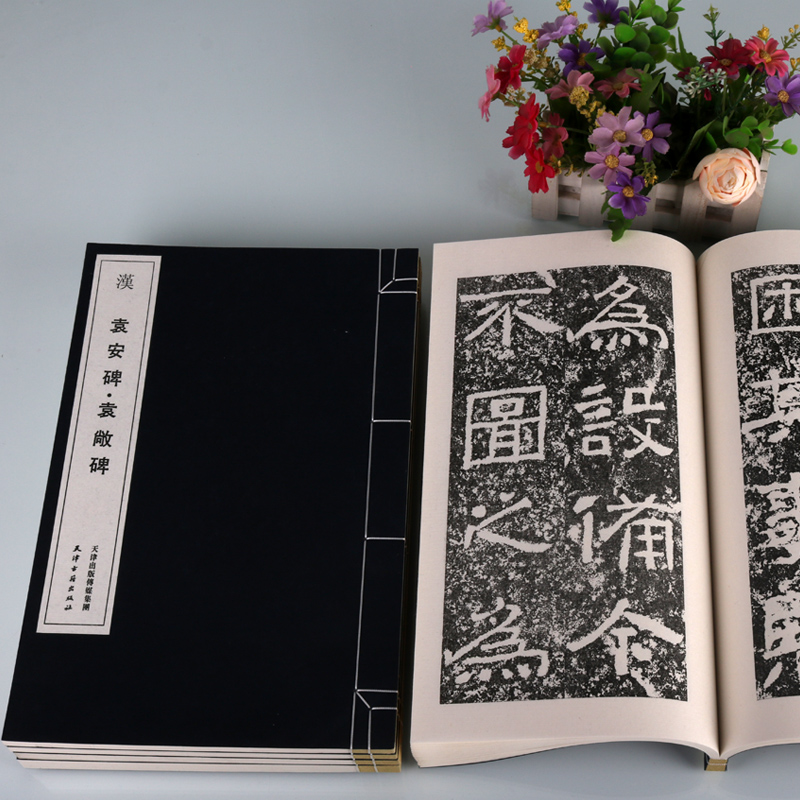 漢
袁安碑·袁敞碑
天津出版傳媒集團
天津古籍出版社
為設備今
不圖之為
困其事